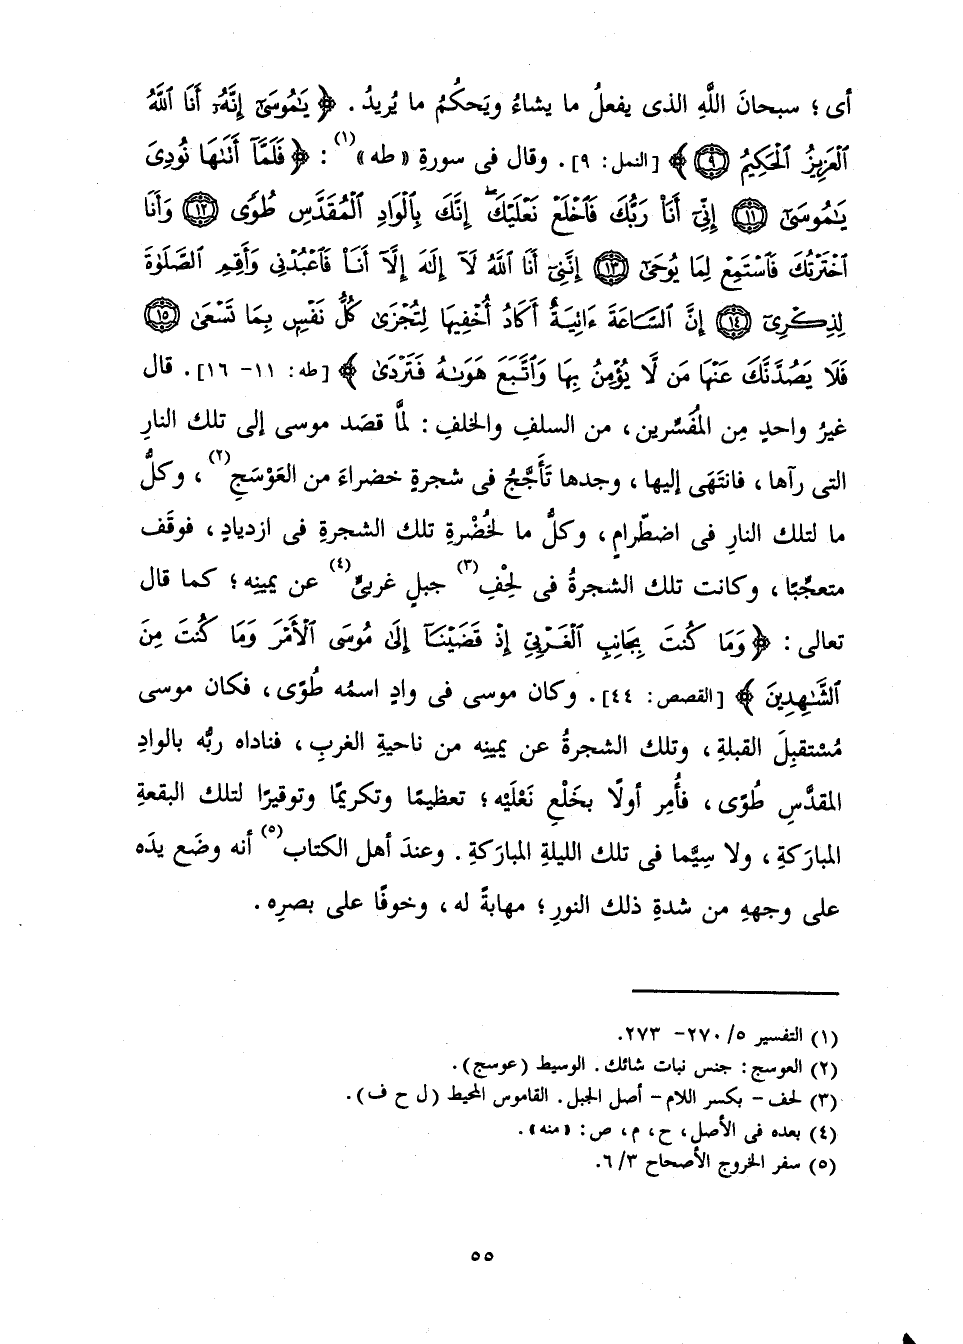 أى؛ سبحانَ اللَّهِ الذى يفعلُ ما يشاءُ ويَحكُمُ ما يُريدُ. ﴿ يَٰمُوسَىٰٓ إِنَّهُۥٓ أَنَا ٱللَّهُ
ٱلْعَزِيزُ ٱلْحَكِيمُ ٩ ﴾ [النمل: ٩]. وقال فى سورةِ «طه»(١): ﴿ فَلَمَّآ أَتَىٰهَا نُودِىَ
يَٰمُوسَىٰٓ ١١ إِنِّىٓ أَنَا۠ رَبُّكَ فَٱخْلَعْ نَعْلَيْكَ ۖ إِنَّكَ بِٱلْوَادِ ٱلْمُقَدَّسِ طُوًى ١٢ وَأَنَا
ٱخْتَرْتُكَ فَٱسْتَمِعْ لِمَا يُوحَىٰٓ ١٣ إِنَّنِىٓ أَنَا ٱللَّهُ لَآ إِلَٰهَ إِلَّآ أَنَا۠ فَٱعْبُدْنِى وَأَقِمِ ٱلصَّلَوٰةَ
لِذِكْرِىٓ ١٤ إِنَّ ٱلسَّاعَةَ ءَاتِيَةٌ أَكَادُ أُخْفِيهَا لِتُجْزَىٰ كُلُّ نَفْسٍۭ بِمَا تَسْعَىٰ ١٥
فَلَا يَصُدَّنَّكَ عَنْهَا مَن لَّا يُؤْمِنُ بِهَا وَٱتَّبَعَ هَوَىٰهُ فَتَرْدَىٰ ﴾ [طه: ١١- ١٦]. قال
غيرُ واحدٍ مِن المُفَسِّرين، من السلفِ والخلفِ: لمَّا قصَد موسى إلى تلك النارِ
التى رآها، فانتَهَى إليها، وجدها تَأَجَّجُ فى شجرةٍ خضراءَ من العَوْسَجِ(٢)، وكلُّ
ما لتلك النارِ فى اضطّرامٍ، وكلُّ ما لخُضْرةِ تلك الشجرةِ فى ازديادٍ، فوقَف
متعجِّبًا، وكانت تلك الشجرةُ فى لِحْفِ(٣) جبلٍ غربىٍّ(٤) عن يمينِه؛ كما قال
تعالى: ﴿ وَمَا كُنتَ بِجَانِبِ ٱلْغَرْبِىِّ إِذْ قَضَيْنَآ إِلَىٰ مُوسَى ٱلْأَمْرَ وَمَا كُنتَ مِنَ
ٱلشَّٰهِدِينَ ﴾ [القصص: ٤٤]. وكان موسى فى وادٍ اسمُه طُوًى، فكان موسى
مُسْتقبِلَ القبلةِ، وتلك الشجرةُ عن يمينِه من ناحيةِ الغربِ، فناداه ربُّه بالوادِ
المقدَّسِ طُوًى، فأُمِر أولًا بخَلْعِ نَعْلَيْه؛ تعظيمًا وتكريمًا وتوقيرًا لتلك البقعةِ
المبارَكةِ، ولا سِيَّما فى تلك الليلةِ المبارَكةِ. وعندَ أهلِ الكتاب(٥) أنه وضَع يدَه
على وجههِ من شدةِ ذلك النورِ؛ مهابةً له، وخوفًا على بصرِه.
(١) التفسير ٥/ ٢٧٠- ٢٧٣.
(٢) العوسج: جنس نبات شائك. الوسيط (عوسج).
(٣) لحف - بكسر اللام - أصل الجبل. القاموس المحيط (ل ح ف).
(٤) بعده فى الأصل، ح، م، ص: «منه».
(٥) سفر الخروج الأصحاح ٦/٣.
٥٥